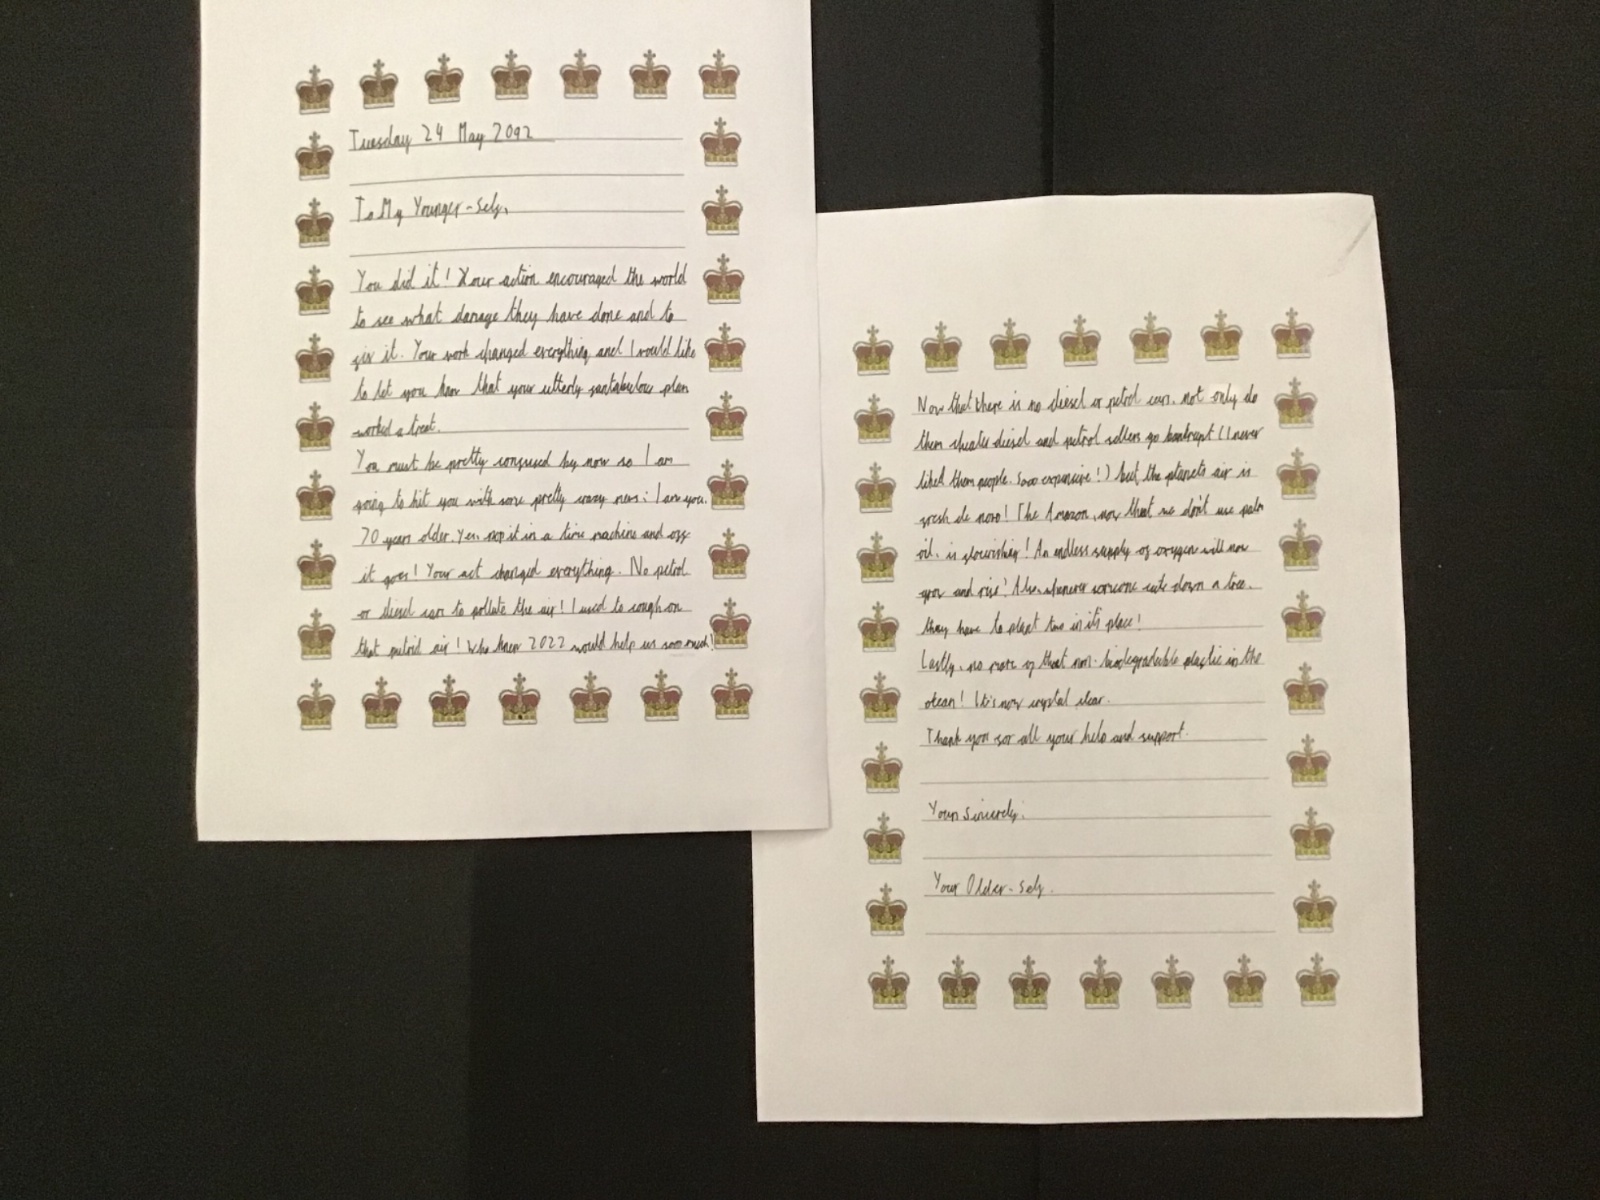 Tuesday 24 May 2092
To My Younger-self,
You did it! Your action encouraged the world
to see what damage they have done and to
fix it. Your work changed everything and I would like
to let you know that your utterly fantabulow plan
worked a treat.
You must be pretty confused by now so I am
going to hit you with some pretty crazy news: I am you,
70 years older. Yes, pop it in a time machine and off
it goes! Your act changed everything. No petrol
or diesel cars to pollute the air! I used to cough on
that putrid air! Who knew 2022 would help us sooo much!
Now that there is no diesel or petrol cars, not only do
them diesel and petrol sellers go bankrupt (I never
liked them people. Sooo expensive!) but the planets air is
fresh now! The Amazon, now that we don't use palm
oil, is flourishing! An endless supply of oxygen will now
grow and rise! Also, whenever someone cuts down a tree,
they have to plant two in it's place!
Lastly, no more of that non-biodegradable plastic in the
ocean! It's now crystal clear.
Thank you for all your help and support.
Yours Sincerely,
Your Older-self.